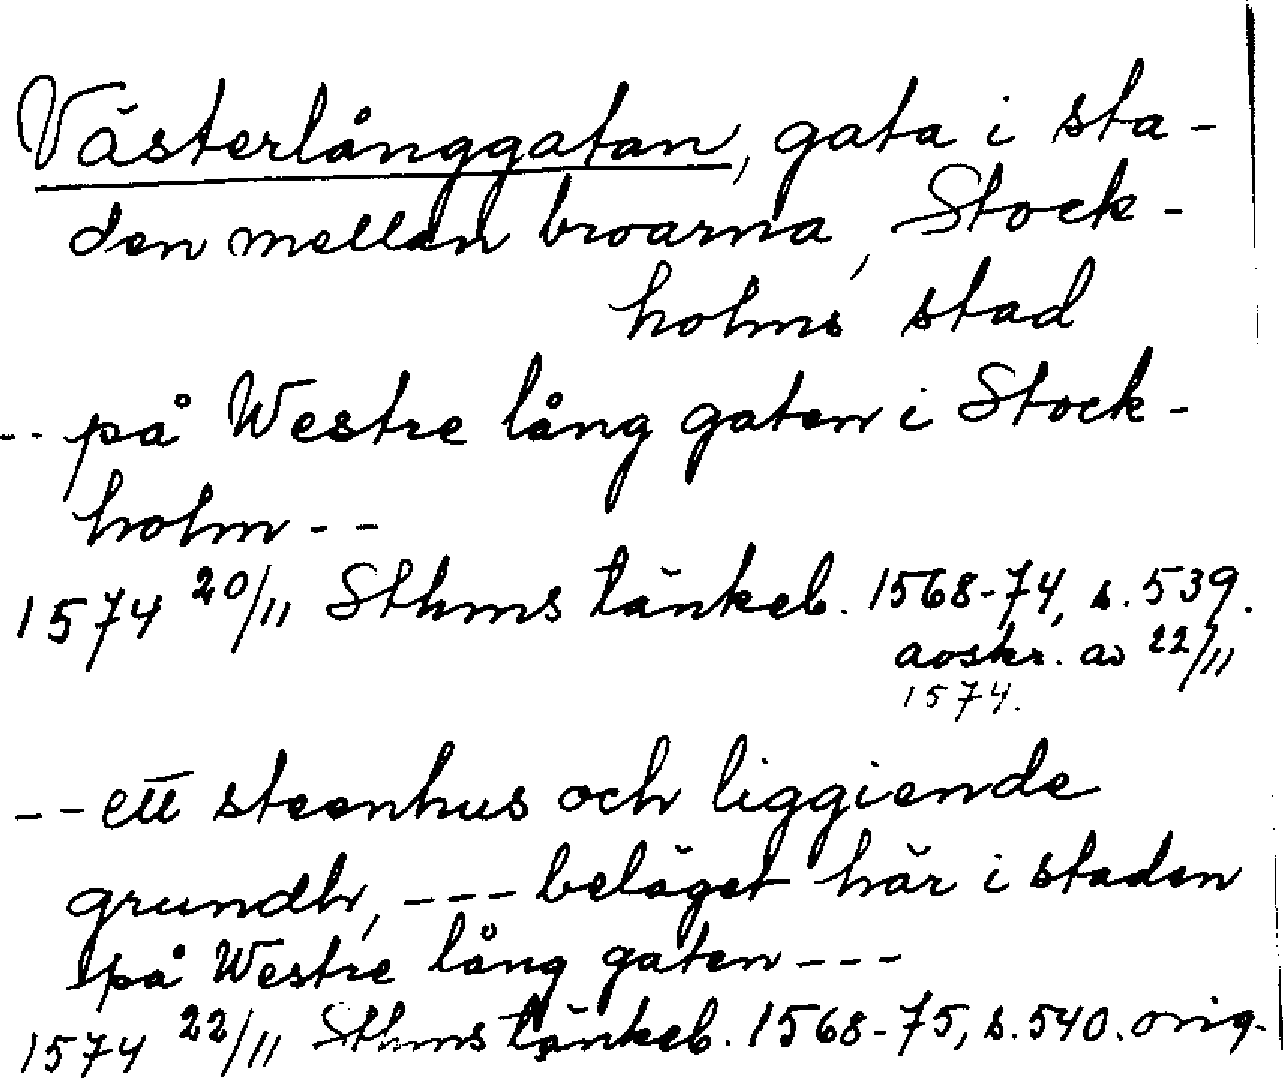 Västerlånggatan, gata i sta-
den mellan broarna, Stock-
holms stad
-- på Westre lång gaten i Stock-
holm --
1574 20/11 Sthms tänkeb. 1568-74, s. 539.
avskr. av 22/11
1574.
-- ett steenhus och liggiende
grundh, --- beläget här i staden
på Westre lång gaten ---
1574 22/11 Sthms tänkeb. 1568-75, s. 540. orig.